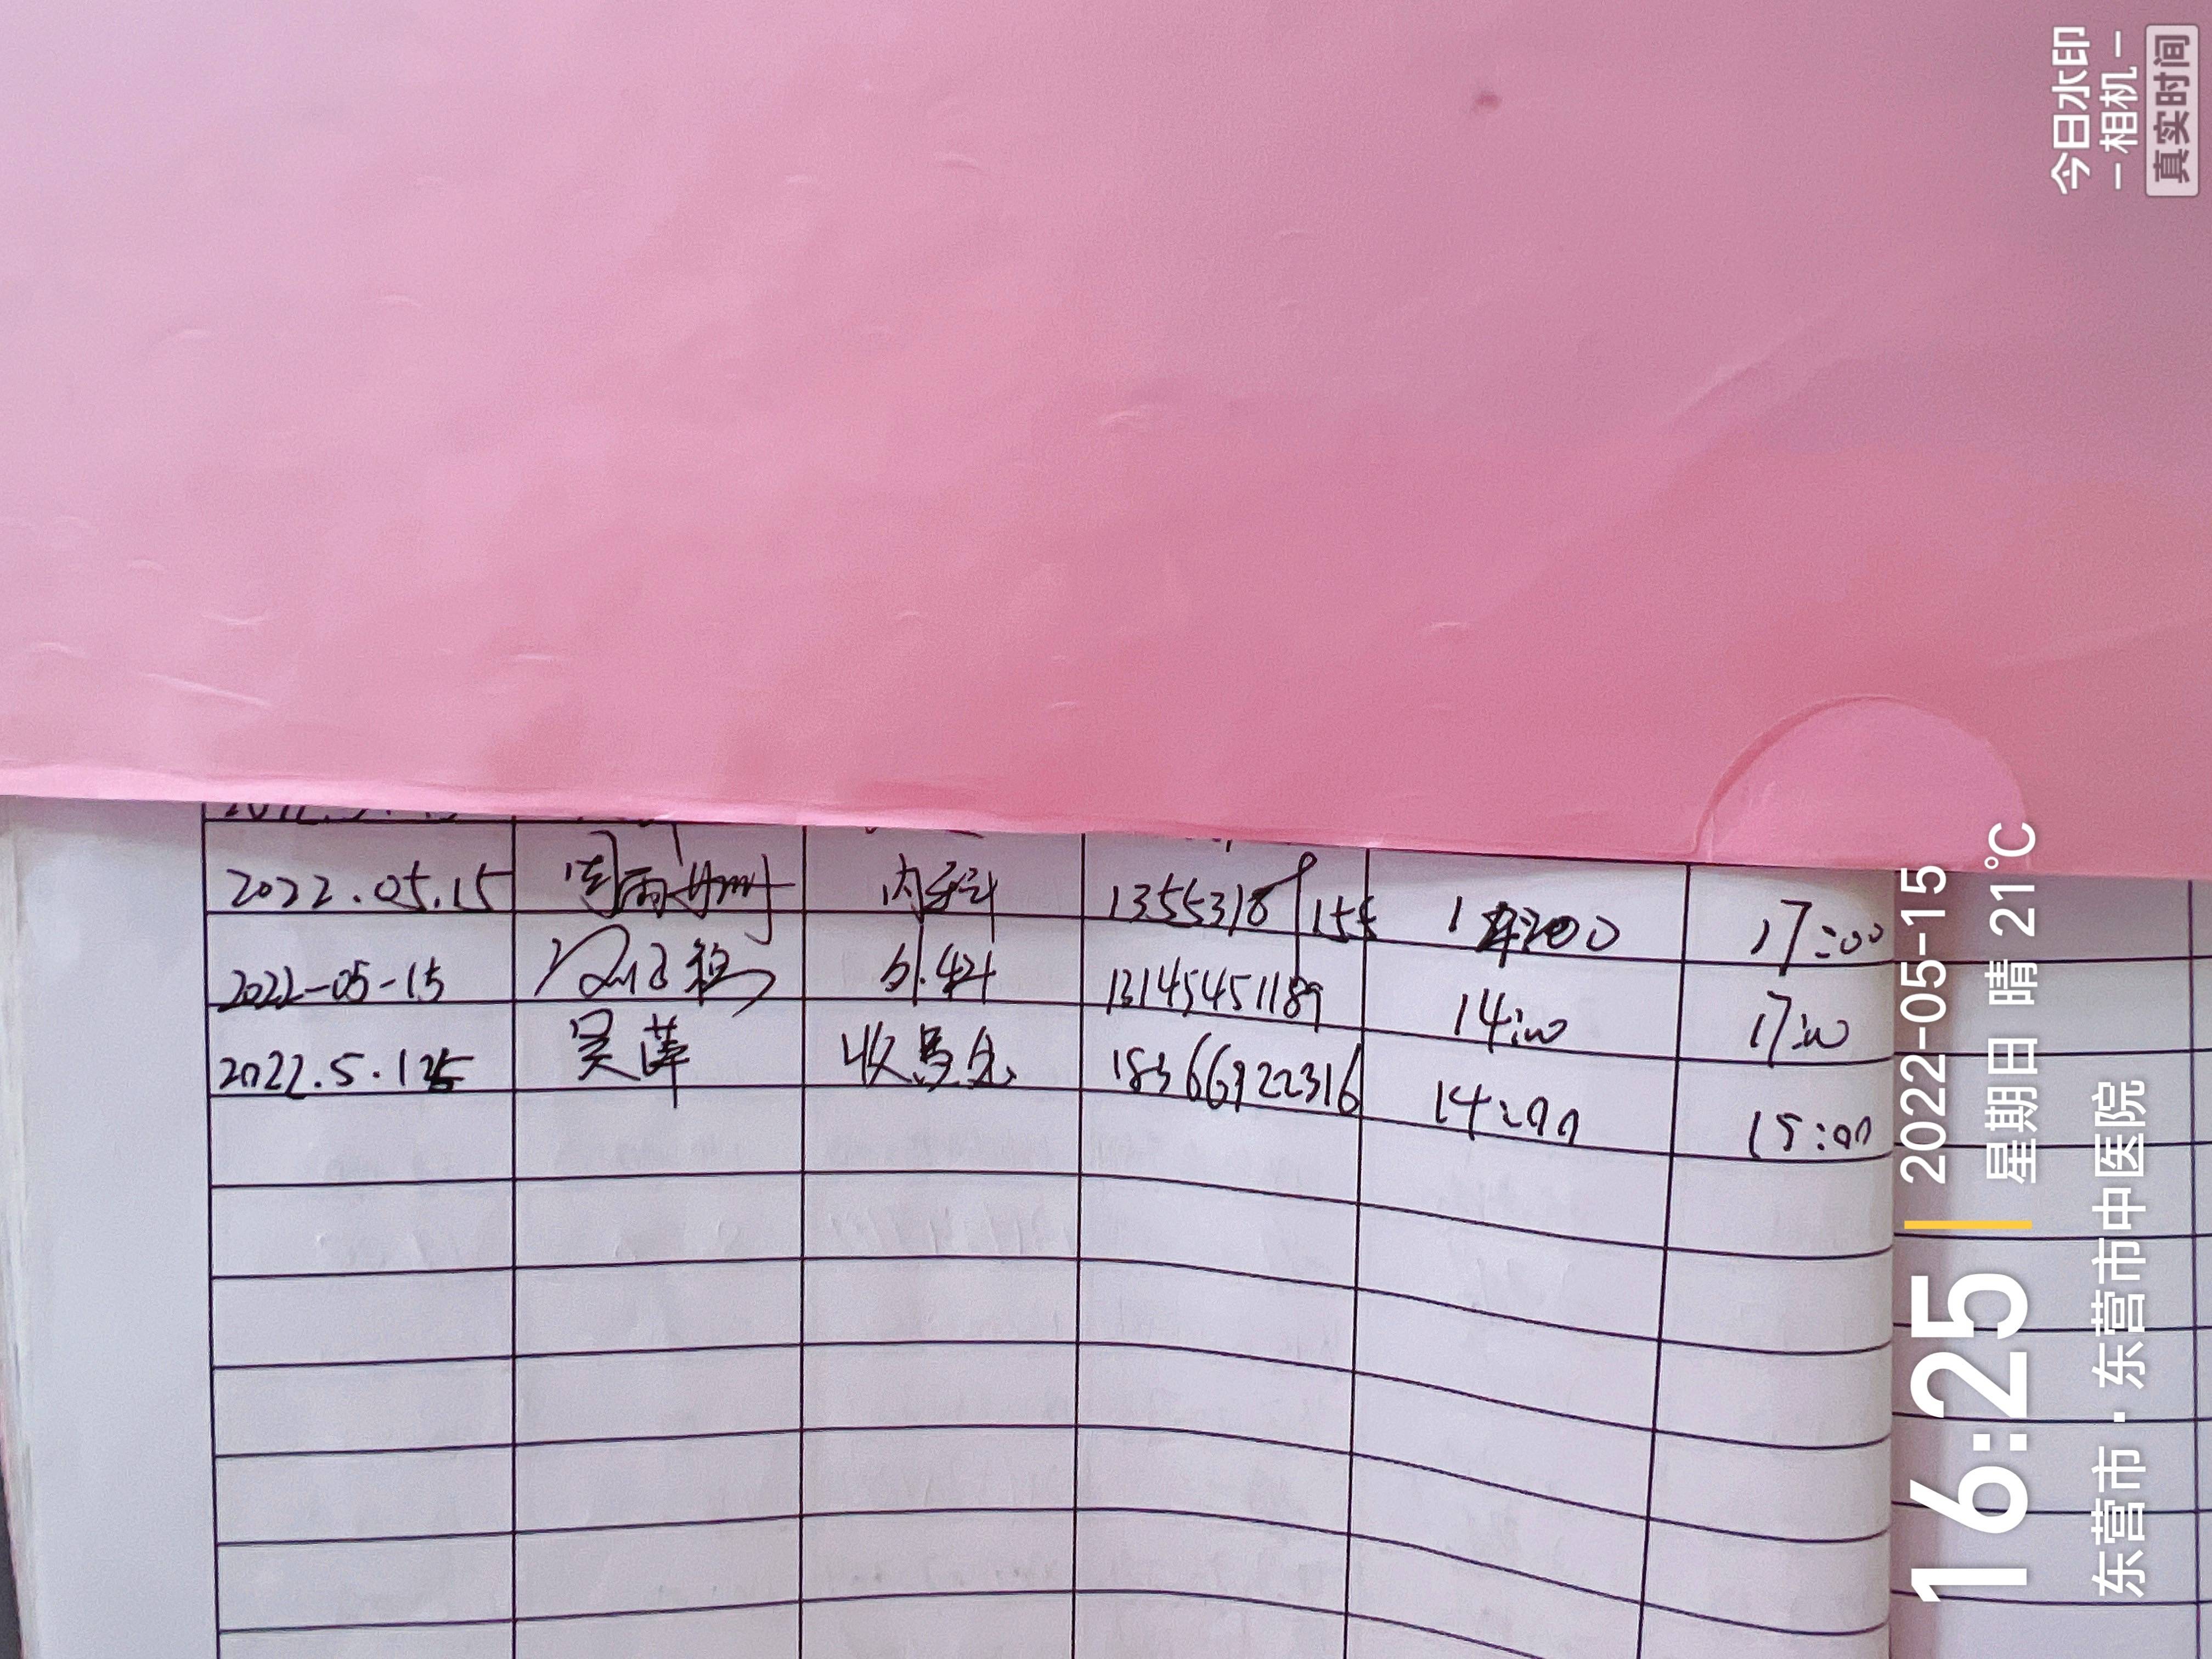 2022.05.15 周雨 内科 1355318 155 17:00
2022-05-15 外科 13145451189 14:00 17:00
2022.5.15 吴萍 收费处 18366922316 14:00 15:00
今日水印
-相机-
真实时间
16:25
2022-05-15
星期日 晴 21℃
东营市·东营市中医院